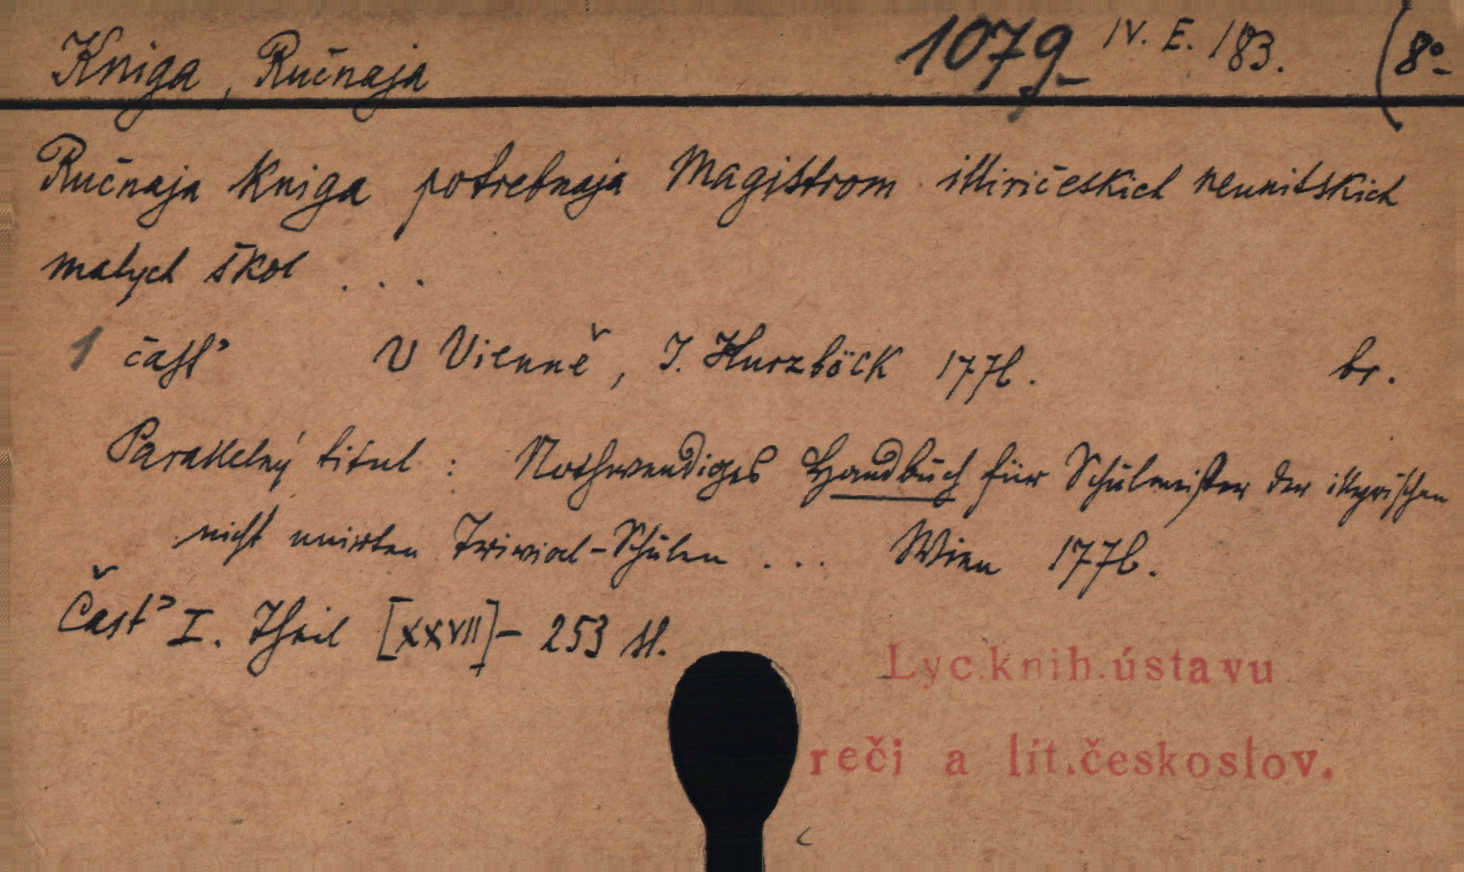 Kniga, Ručnaja 1079 IV. E. 183. (8°
Ručnaja kniga potrebnaja Magistrom illiričeskich neunitskich
malych škol ...
1 časť V Vienně, I. Kurzböck 1776. br.
Parallelný titul: Nothwendiges Handbuch für Schulmeister der illyrischen
nicht unirten Trivial-Schulen ... Wien 1776.
Časť I. Theil [XXVII] - 253 st.
Lyc.knih.ústavu
reči a lit.českoslov.